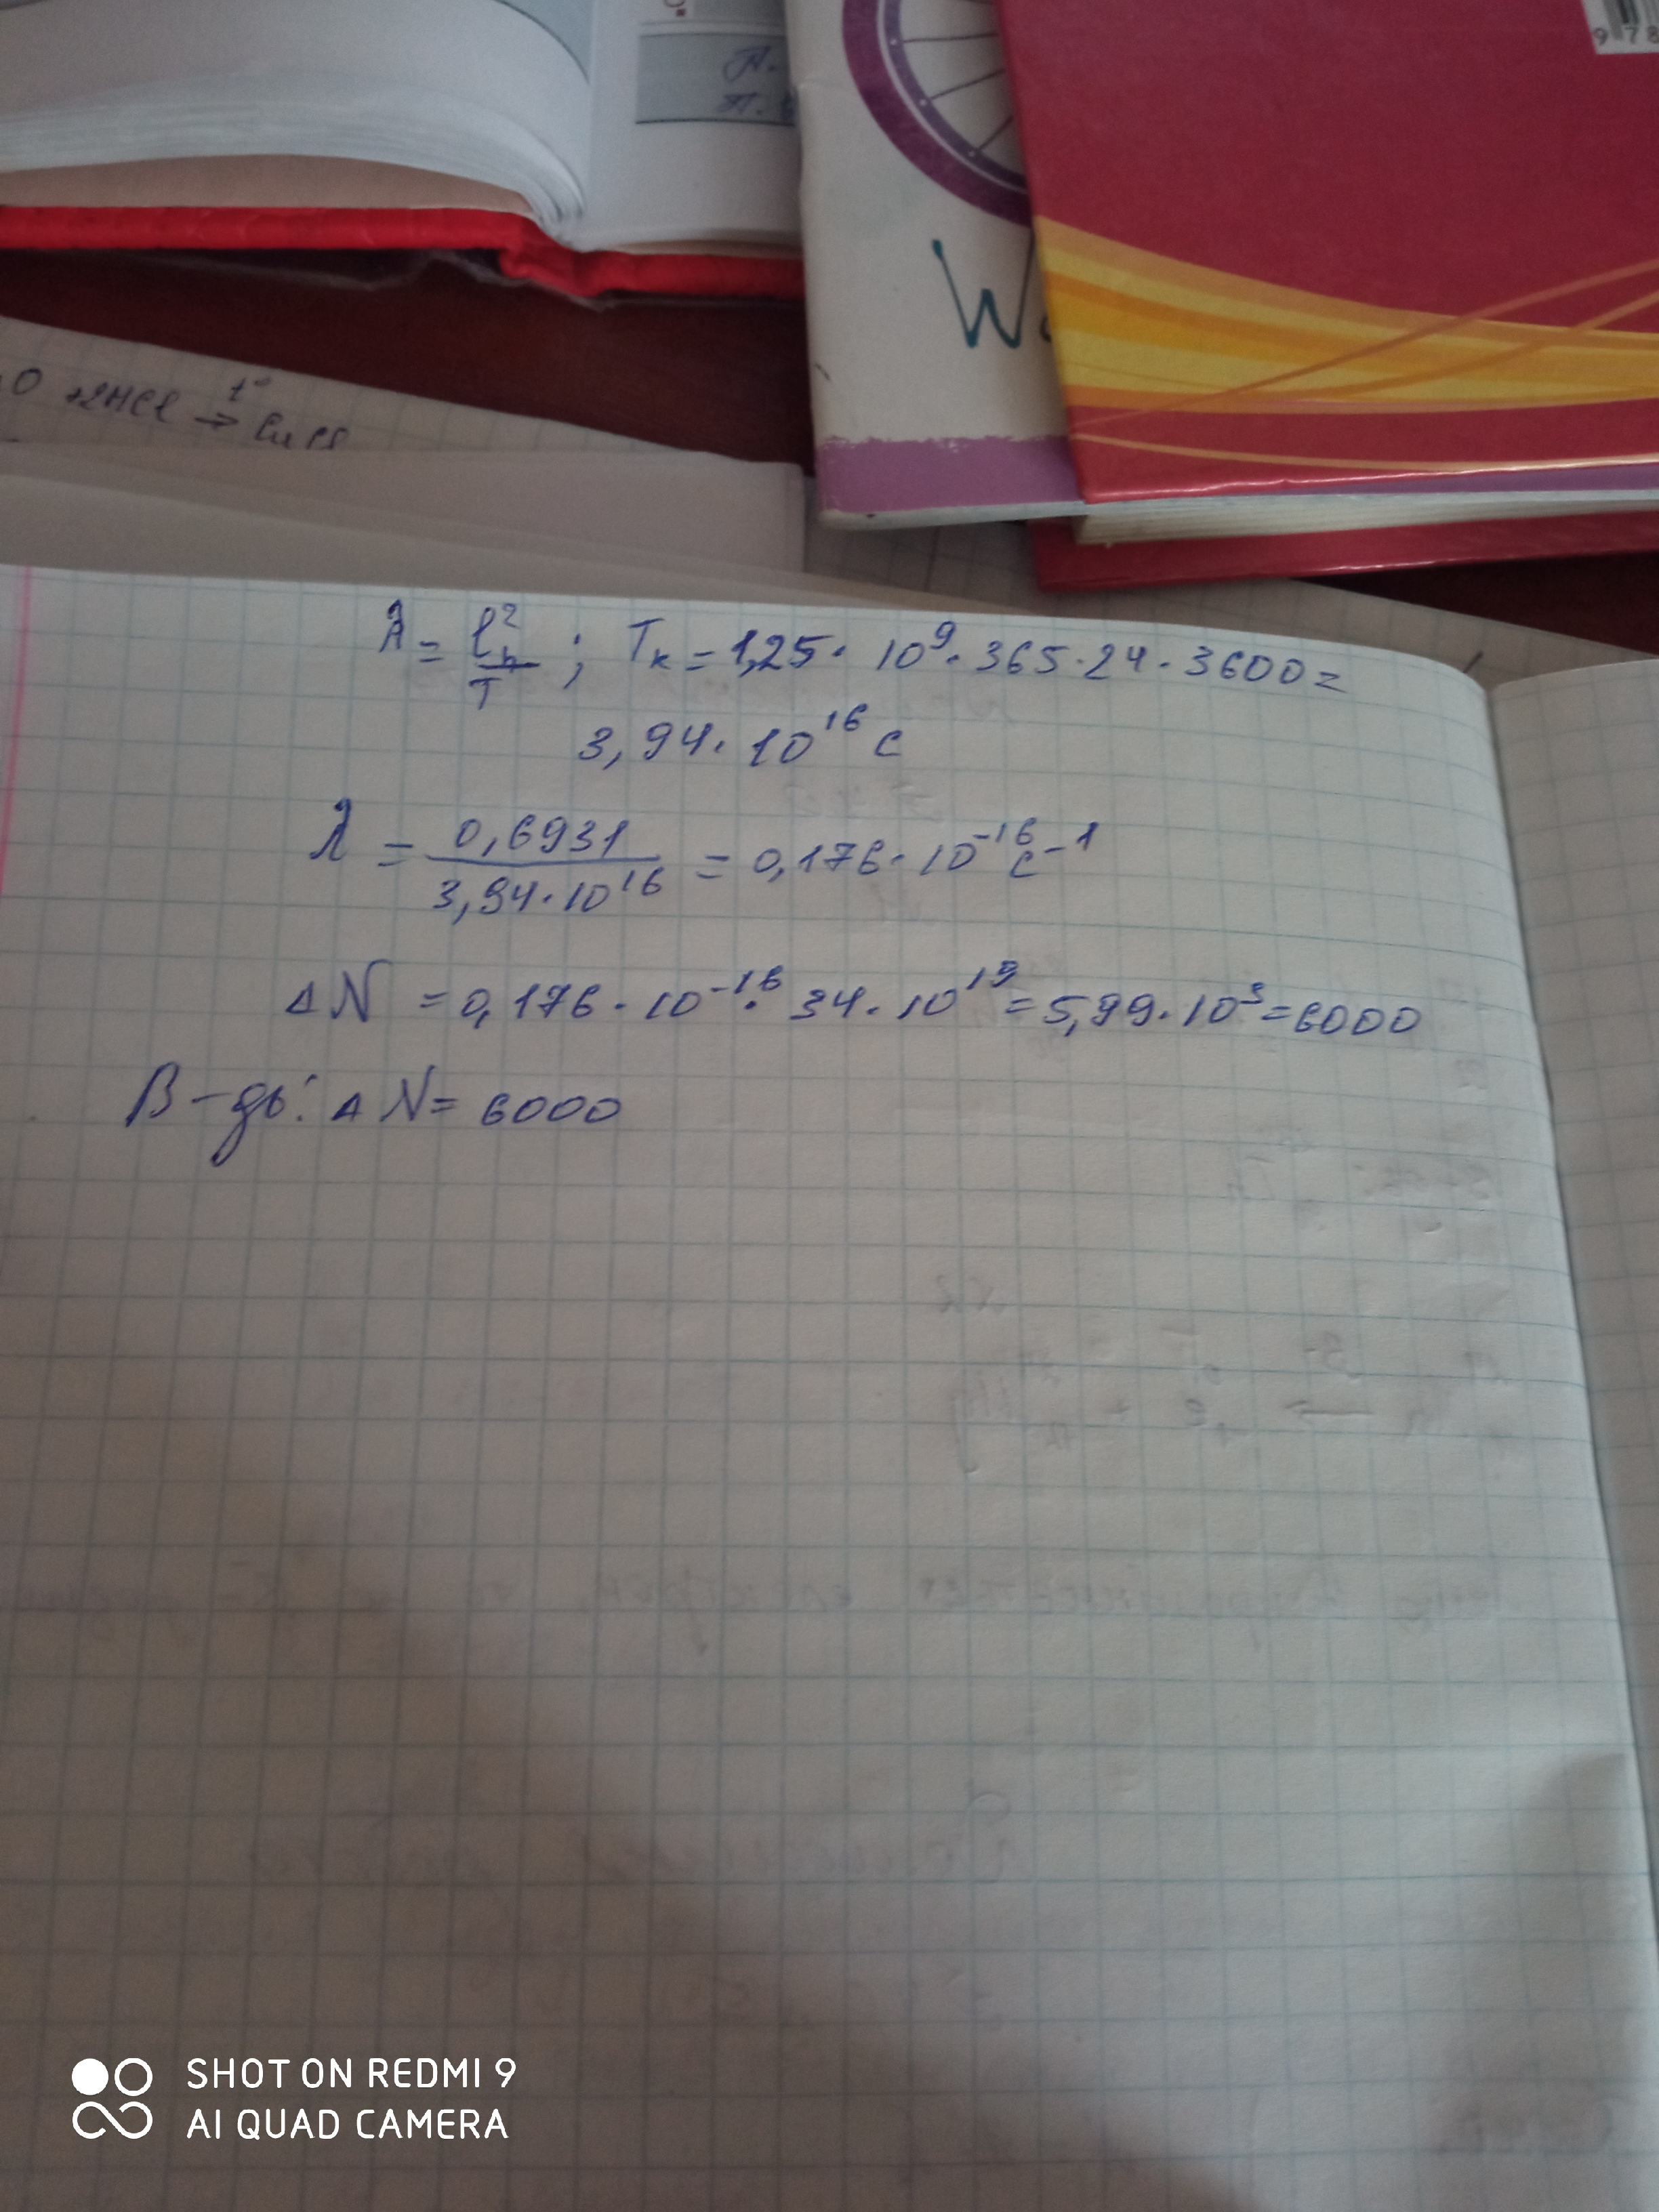 978
W
O +2HCl t° → CuCl
λ = ln2/T ; Tк = 1,25 · 10⁹ · 365 · 24 · 3600 =
3,94 · 10¹⁶ с
λ = 0,6931/3,94·10¹⁶ = 0,176 · 10⁻¹⁶ с⁻¹
ΔN = 0,176 · 10⁻¹⁶ · 34 · 10¹⁹ = 5,99 · 10³ = 6000
В-дь: ΔN = 6000
SHOT ON REDMI 9
AI QUAD CAMERA